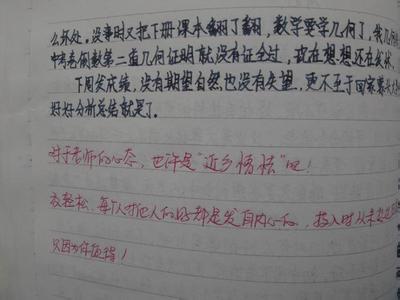 么坏处。没事时又把下册课本翻了翻,数学要学几何了,我几何
中考卷倒数第二道几何证明就没有证全过,现在想想还在
下周发成绩,没有期望自然也没有失望,更不至于国家
好好分析总结就是了。
对于老师的心态,也许是“近乡情怯”吧!
轻松,每个人对他人的好都是发自内心的,
只因为你值得!